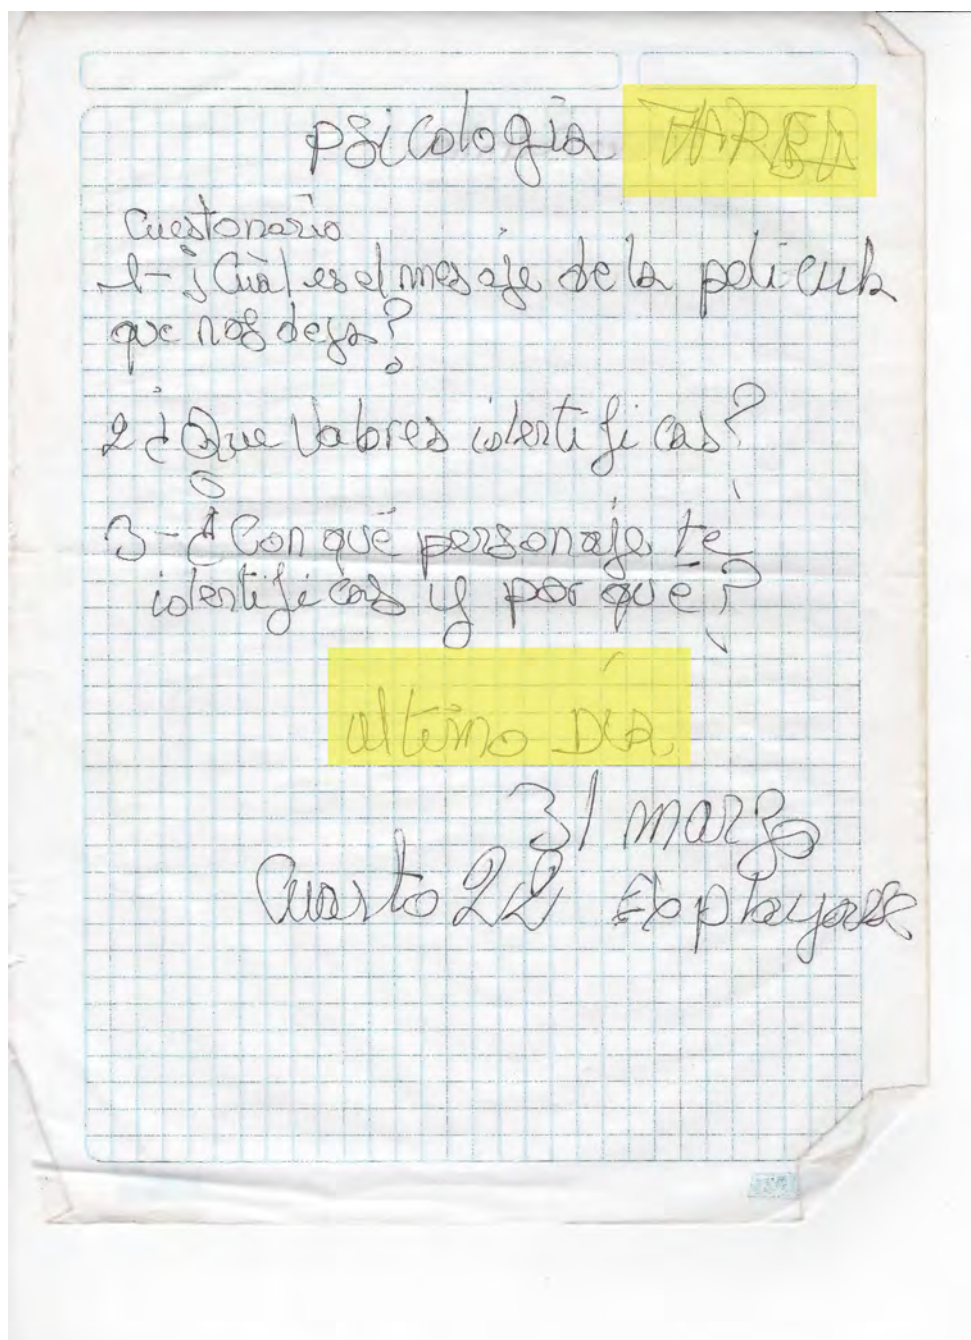 psicologia TAREA
Cuestonario
1-¿Cuál es el mesaje de la pelicula
que nos deja?
2¿Que Valores identificas?
3-¿Con qué personaje te
identificas y por qué?
ultimo Día
31 marzo
Cuarto 22 Explayarse